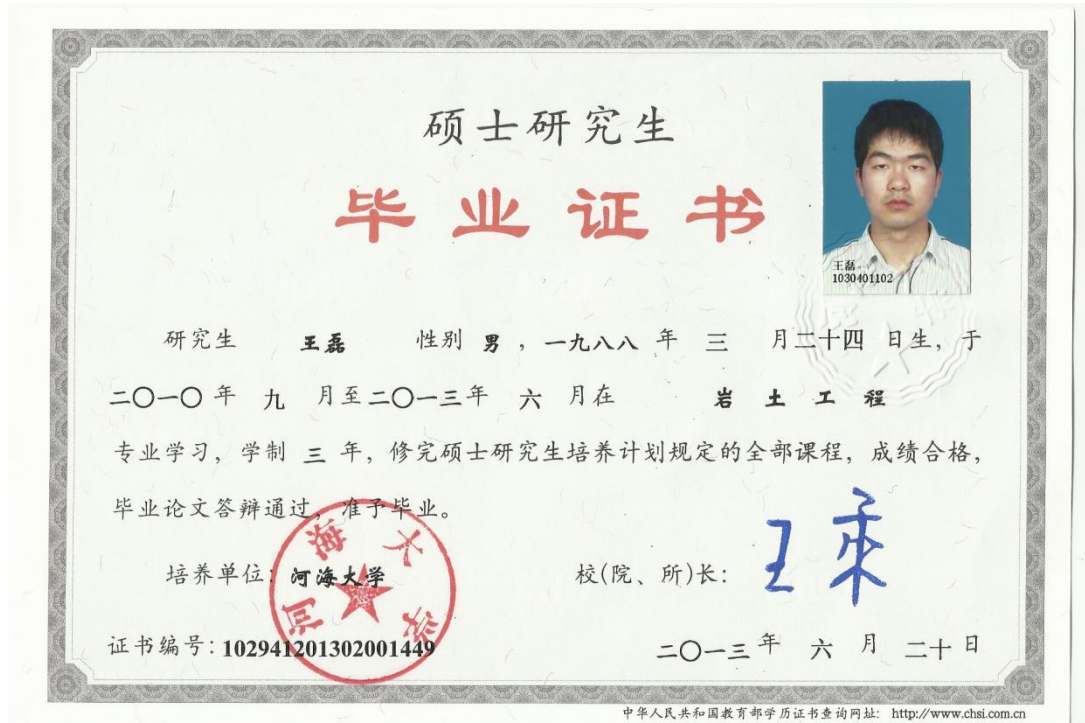 硕士研究生
毕业证书
王磊
1030401102
研究生 王磊 性别 男 ，一九八八 年 三 月二十四 日生，于
二〇一〇年 九 月至二〇一三年 六 月在 岩土工程
专业学习，学制 三 年，修完硕士研究生培养计划规定的全部课程，成绩合格，
毕业论文答辩通过，准予毕业。
培养单位：河海大学 校(院、所)长：
河海大学
证书编号：102941201302001449 二〇一三年 六 月 二十日
中华人民共和国教育部学历证书查询网址：http://www.chsi.com.cn